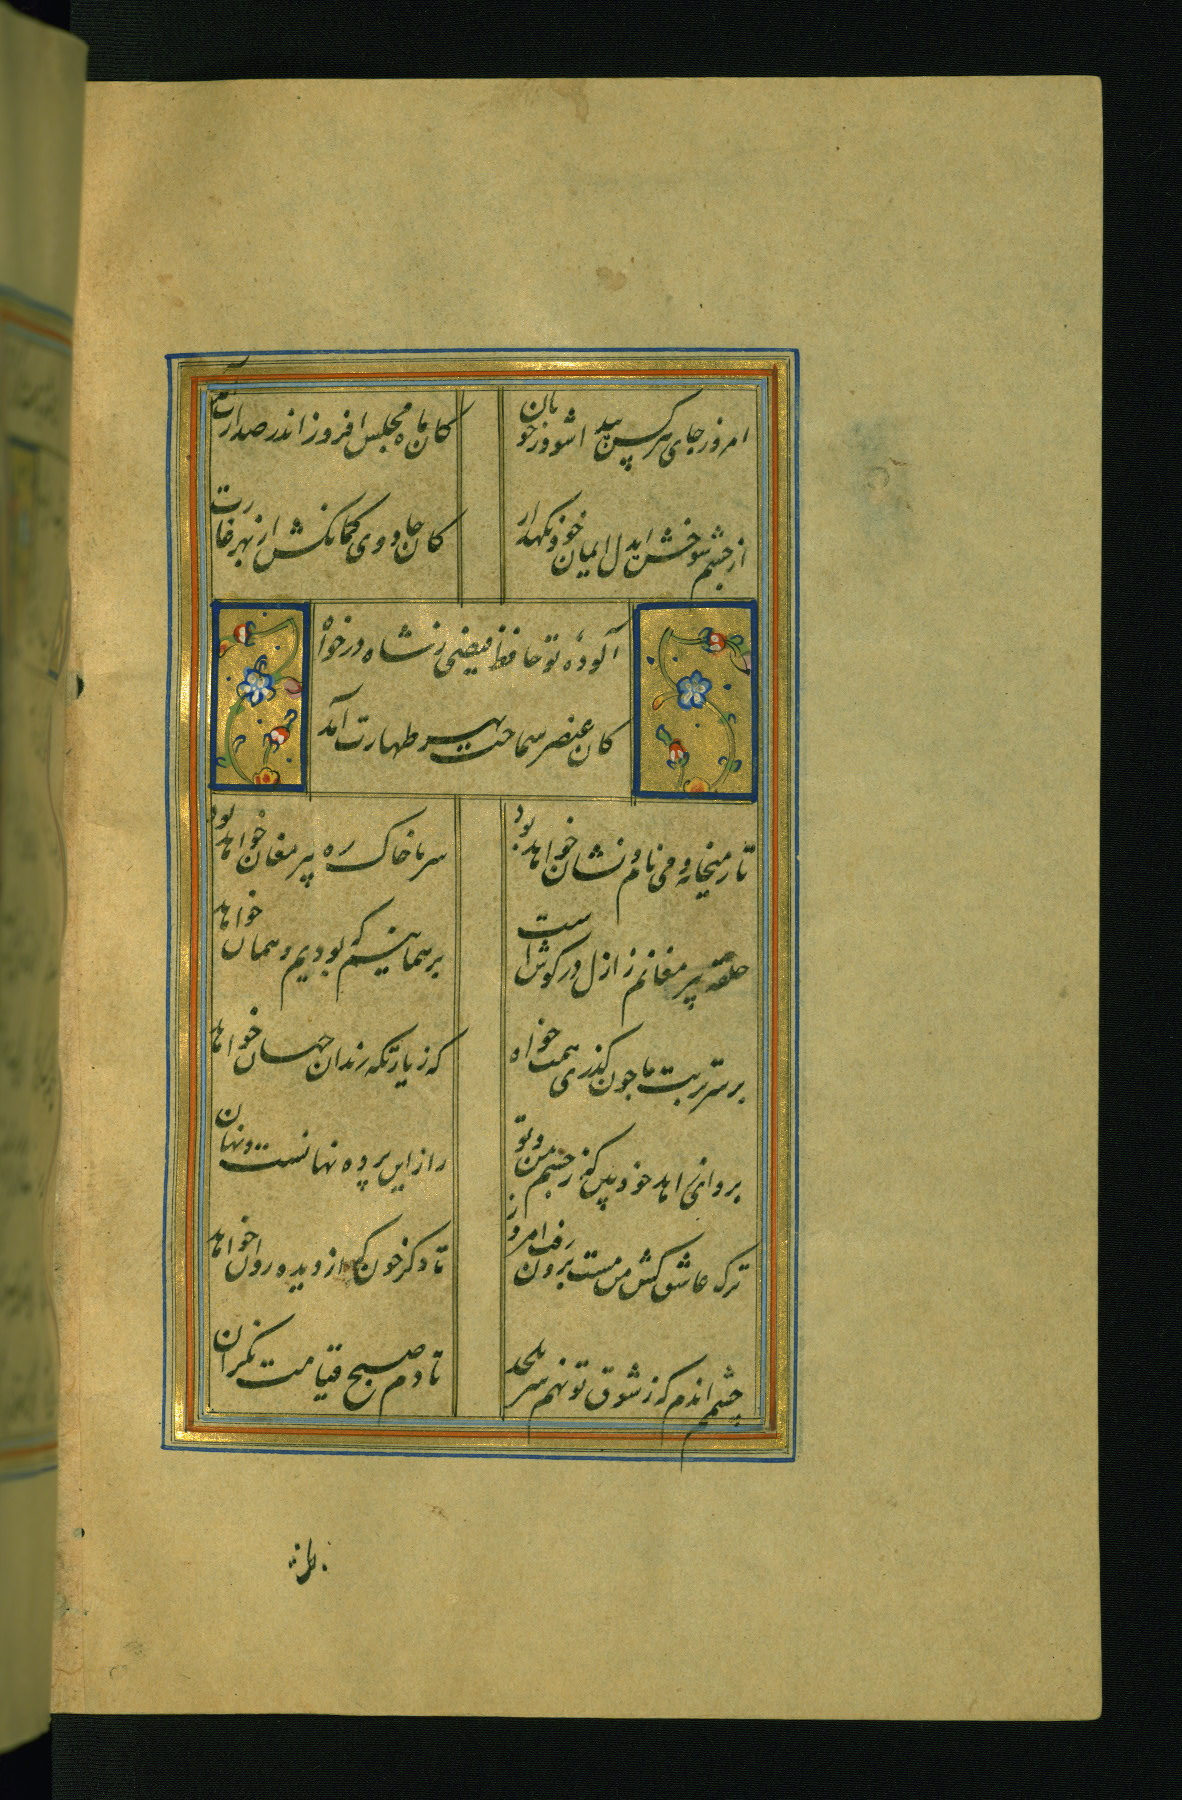 امروز جای هر کس پیدا شود ز خوبان
کان ماه مجلس افروز اندر صدارت آمد
از چشم شوخش ایدل ایمان خود نکهدار
کان جادوی کمانکش از بهر غارت
آلوده تو حافظ فیضی ز شاه در خواه
کان عنصر سماحت بهر طهارت آمد
تا ز میخانه و می نام و نشان خواهد بود
سر ما خاک ره پیر مغان خواهد بود
حلقه پیر مغانم ز ازل در کوش است
بر همانیم که بودیم و همان خواهد
بر سر تربت ما چون کذری همت خواه
که زیارتکه رندان جهان خواهد
برو ای زاهد خودبین که ز چشم من و تو
راز این پرده نهانست و نهان
ترک عاشق کش من مست برون رفت امروز
تا دکر خون که از دیده روان خواهد
چشم اندم که ز شوق تو نهم سر بلحد
تا دم صبح قیامت نکران